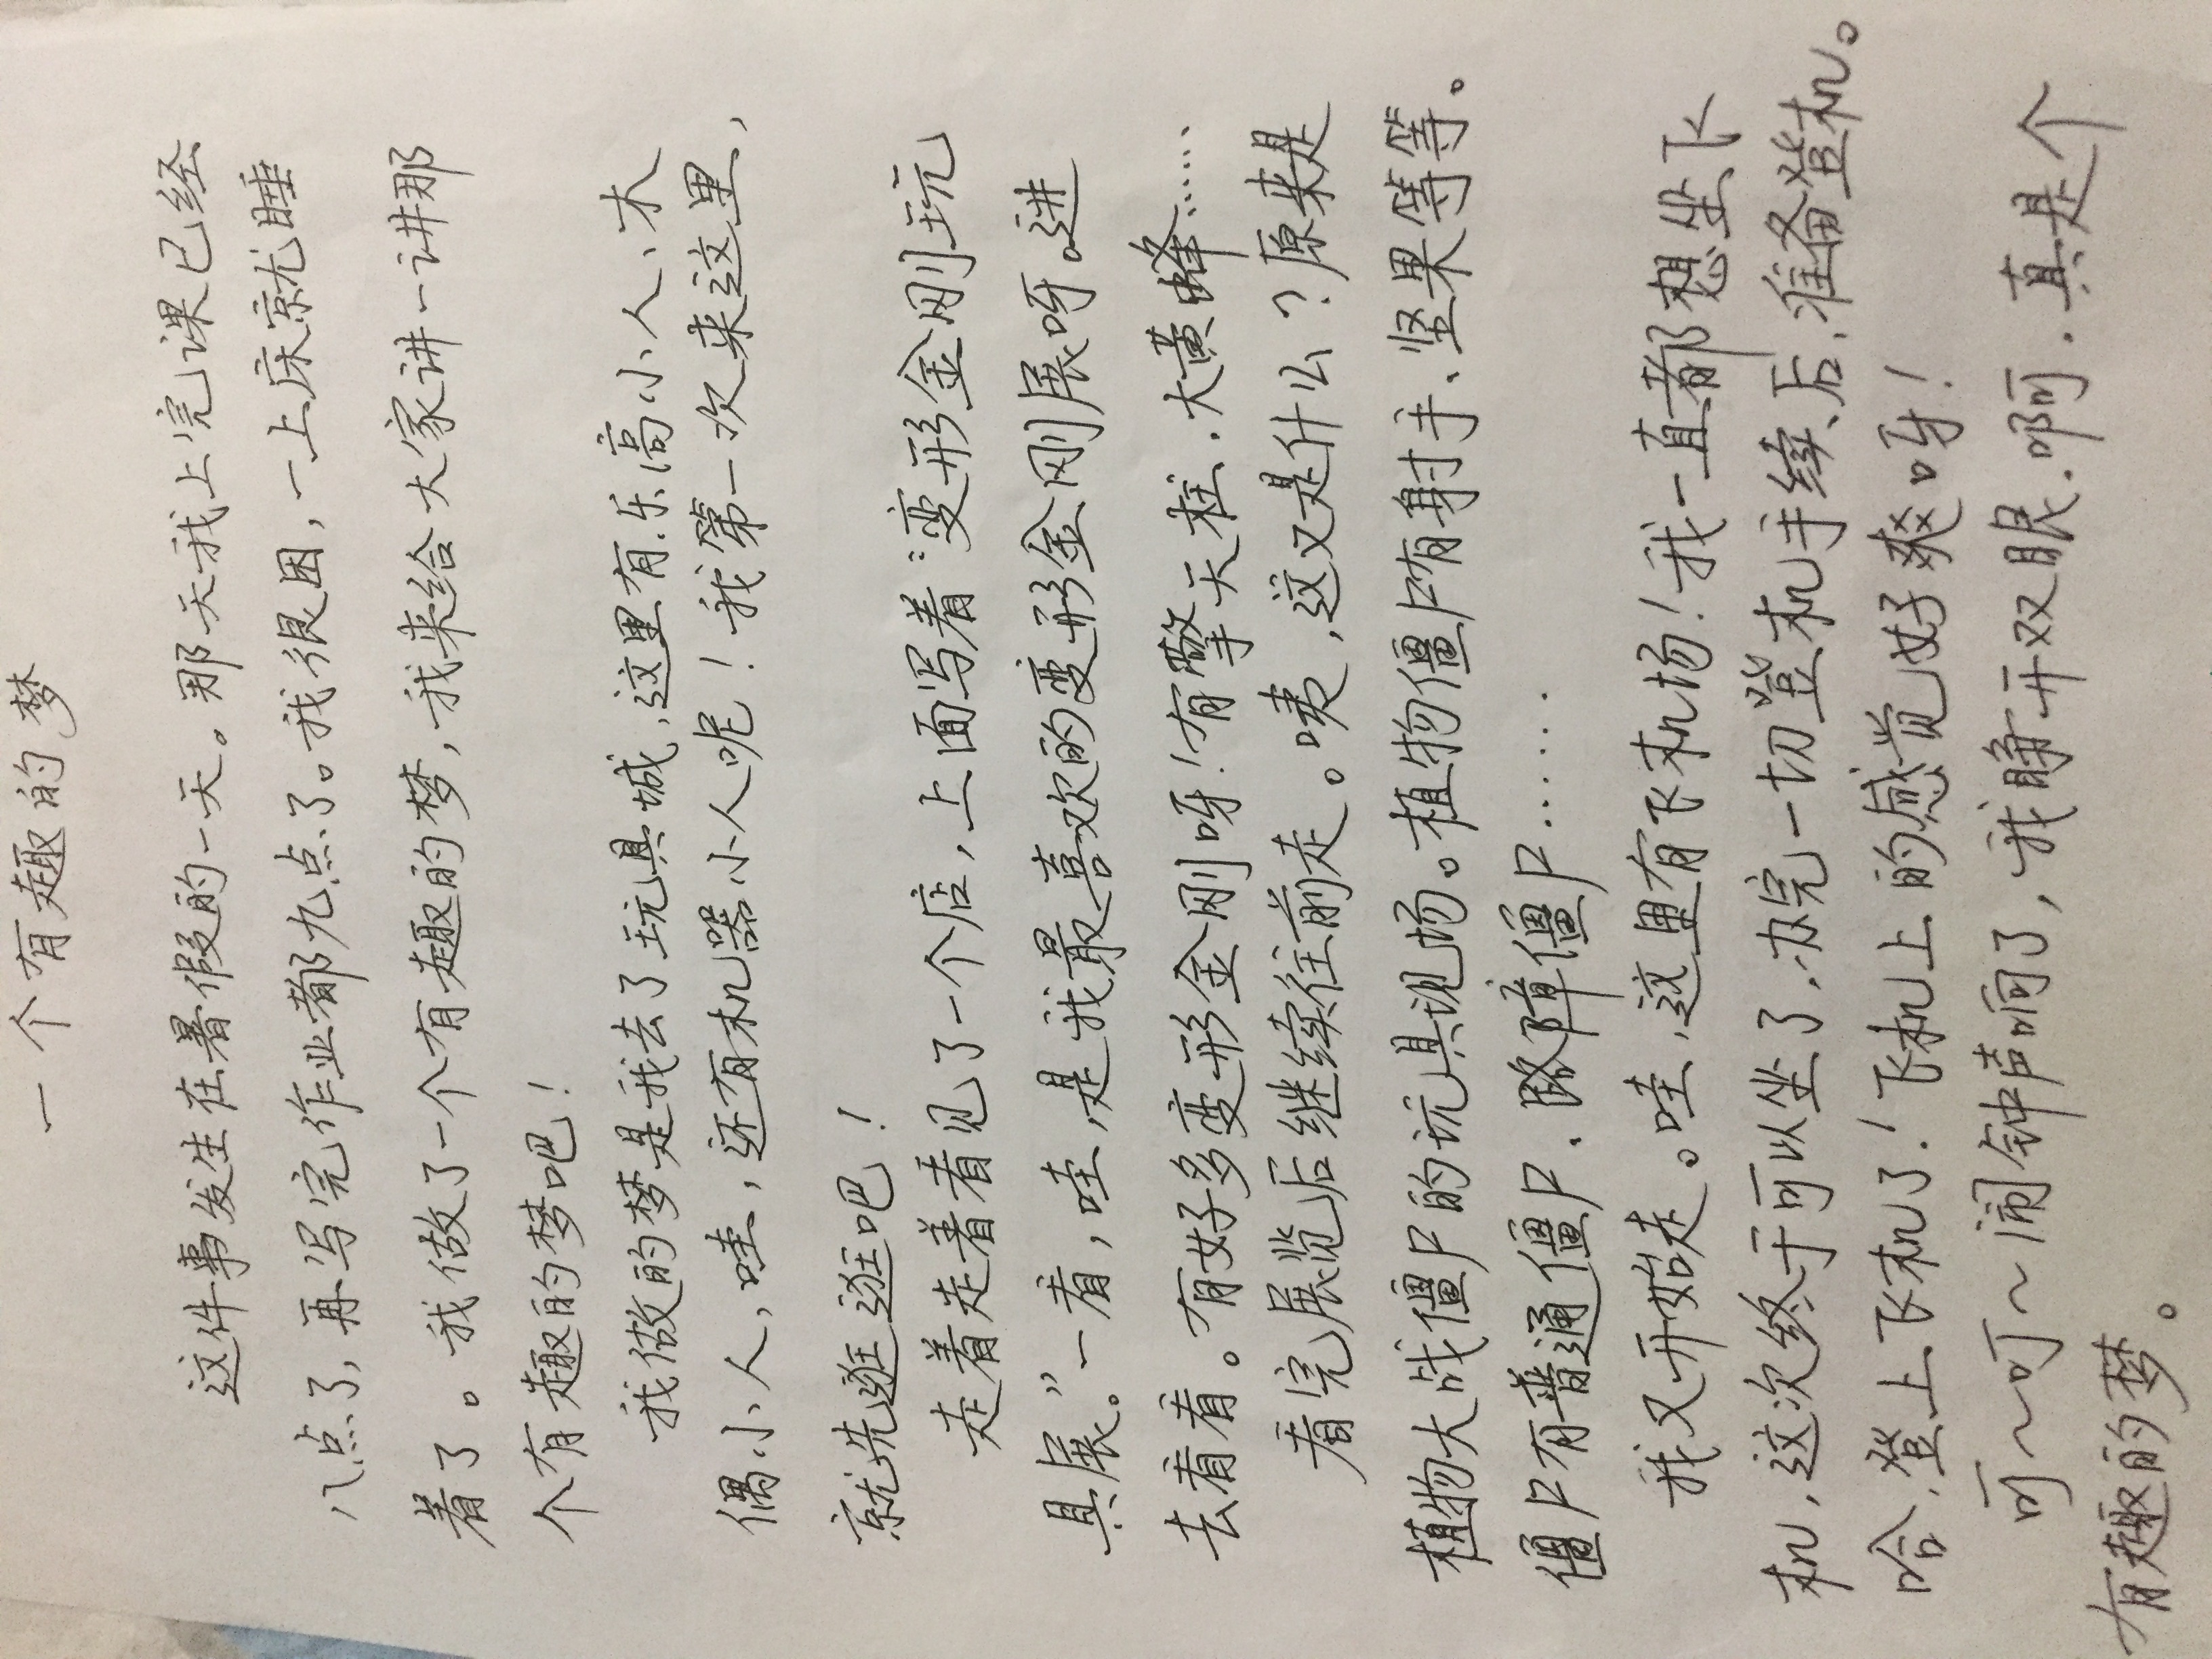 一个有趣的梦
这件事发生在暑假的一天。那天我上完课已经
八点了,再写完作业都九点了。我很困,一上床就睡
着了。我做了一个有趣的梦,我来给大家讲一讲那
个有趣的梦吧!
我做的梦是我去了玩具城,这里有乐高小人、木
偶小人,哇,还有机器小人呢!我第一次来这里,
就先逛逛吧!
走着走着看见了一个店,上面写着“变形金刚玩
具展。”一看,哇,是我最喜欢的变形金刚展呀。进
去看看。有好多变形金刚呀!有擎天柱、大黄蜂……
看完展览后继续往前走。咦,这又是什么?原来是
植物大战僵尸的玩具现场。植物僵尸有射手、坚果等等。
僵尸有普通僵尸、路障僵尸……
我又开始走。哇,这里有飞机场!我一直都想坐飞
机,这次终于可以坐了,办完一切登机手续后,准备登机。
哈,登上飞机了!飞机上的感觉好爽呀!
叮~叮~闹钟声响了,我睁开双眼,啊,真是个
有趣的梦。